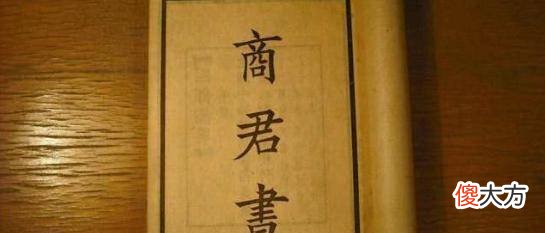 商君書
傻大方